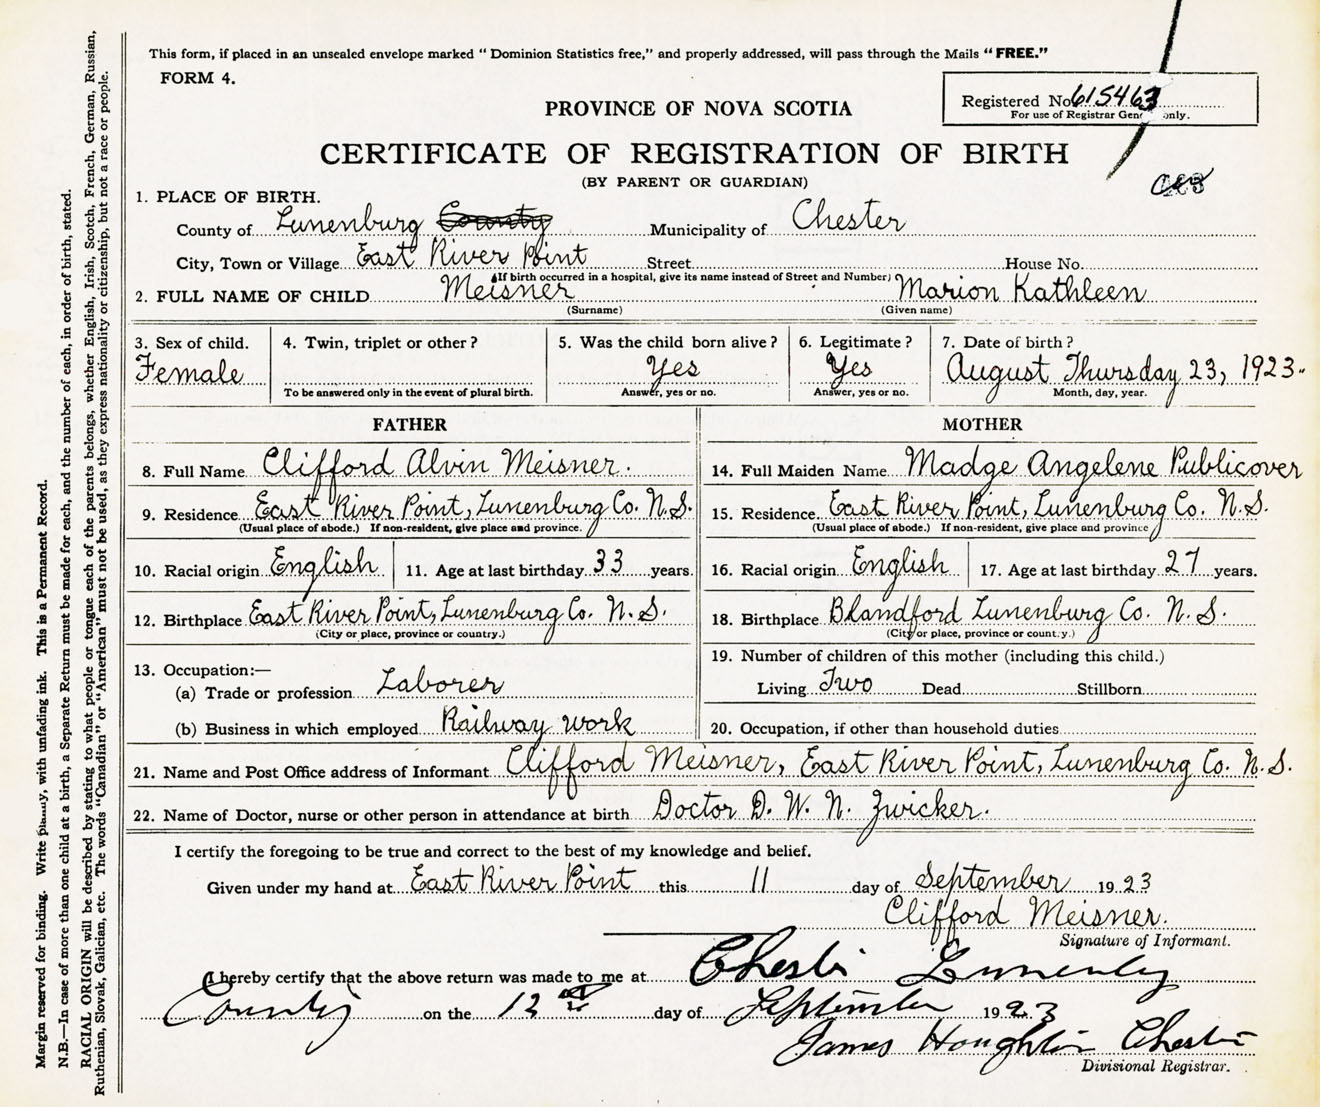 This form, if placed in an unsealed envelope marked "Dominion Statistics free," and properly addressed, will pass through the Mails "FREE."
FORM 4.
Registered No. 615463
For use of Registrar General only.
PROVINCE OF NOVA SCOTIA
CERTIFICATE OF REGISTRATION OF BIRTH
(BY PARENT OR GUARDIAN)
1. PLACE OF BIRTH.
County of Lunenburg County Municipality of Chester
City, Town or Village East River Point Street House No.
(If birth occurred in a hospital, give its name instead of Street and Number)
2. FULL NAME OF CHILD Meisner Marion Kathleen
(Surname) (Given name)
3. Sex of child. 4. Twin, triplet or other? 5. Was the child born alive? 6. Legitimate? 7. Date of birth?
Female Yes Yes August Thursday 23, 1923.
To be answered only in the event of plural birth. Answer, yes or no. Answer, yes or no. Month, day, year.
FATHER MOTHER
8. Full Name Clifford Alvin Meisner. 14. Full Maiden Name Madge Angelene Publicover
9. Residence East River Point, Lunenburg Co. N.S. 15. Residence East River Point, Lunenburg Co. N.S.
(Usual place of abode.) If non-resident, give place and province. (Usual place of abode.) If non-resident, give place and province
10. Racial origin English 11. Age at last birthday 33 years. 16. Racial origin English 17. Age at last birthday 27 years.
12. Birthplace East River Point, Lunenburg Co. N.S. 18. Birthplace Blandford Lunenburg Co. N.S.
(City or place, province or country.) (City or place, province or country.)
13. Occupation:— 19. Number of children of this mother (including this child.)
(a) Trade or profession Laborer Living Two Dead Stillborn
(b) Business in which employed Railway work 20. Occupation, if other than household duties
21. Name and Post Office address of Informant Clifford Meisner, East River Point, Lunenburg Co. N.S.
22. Name of Doctor, nurse or other person in attendance at birth Doctor D. W. N. Zwicker.
I certify the foregoing to be true and correct to the best of my knowledge and belief.
Given under my hand at East River Point this 11 day of September 1923
Clifford Meisner.
Signature of Informant.
I hereby certify that the above return was made to me at Chester Lunenburg
County on the 12th day of September 1923
James Houghton Chester
Divisional Registrar.
Margin reserved for binding. Write plainly, with unfading ink. This is a Permanent Record.
N.B.—In case of more than one child at a birth, a Separate Return must be made for each, and the number of each, in order of birth, stated.
RACIAL ORIGIN will be described by stating to what people or tongue each of the parents belongs, whether English, Irish, Scotch, French, German, Russian,
Ruthenian, Slovak, Galician, etc. The words "Canadian" or "American" must not be used, as they express nationality or citizenship, but not a race or people.